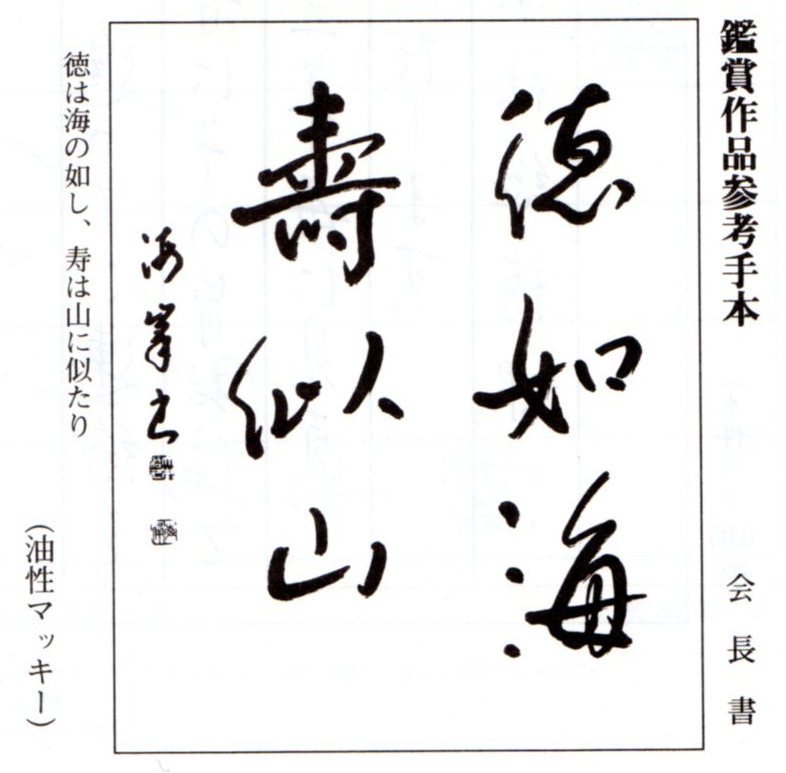 鑑賞作品参考手本
会長書
徳如海
壽似山
海峯書
徳は海の如し、寿は山に似たり
(油性マッキー)